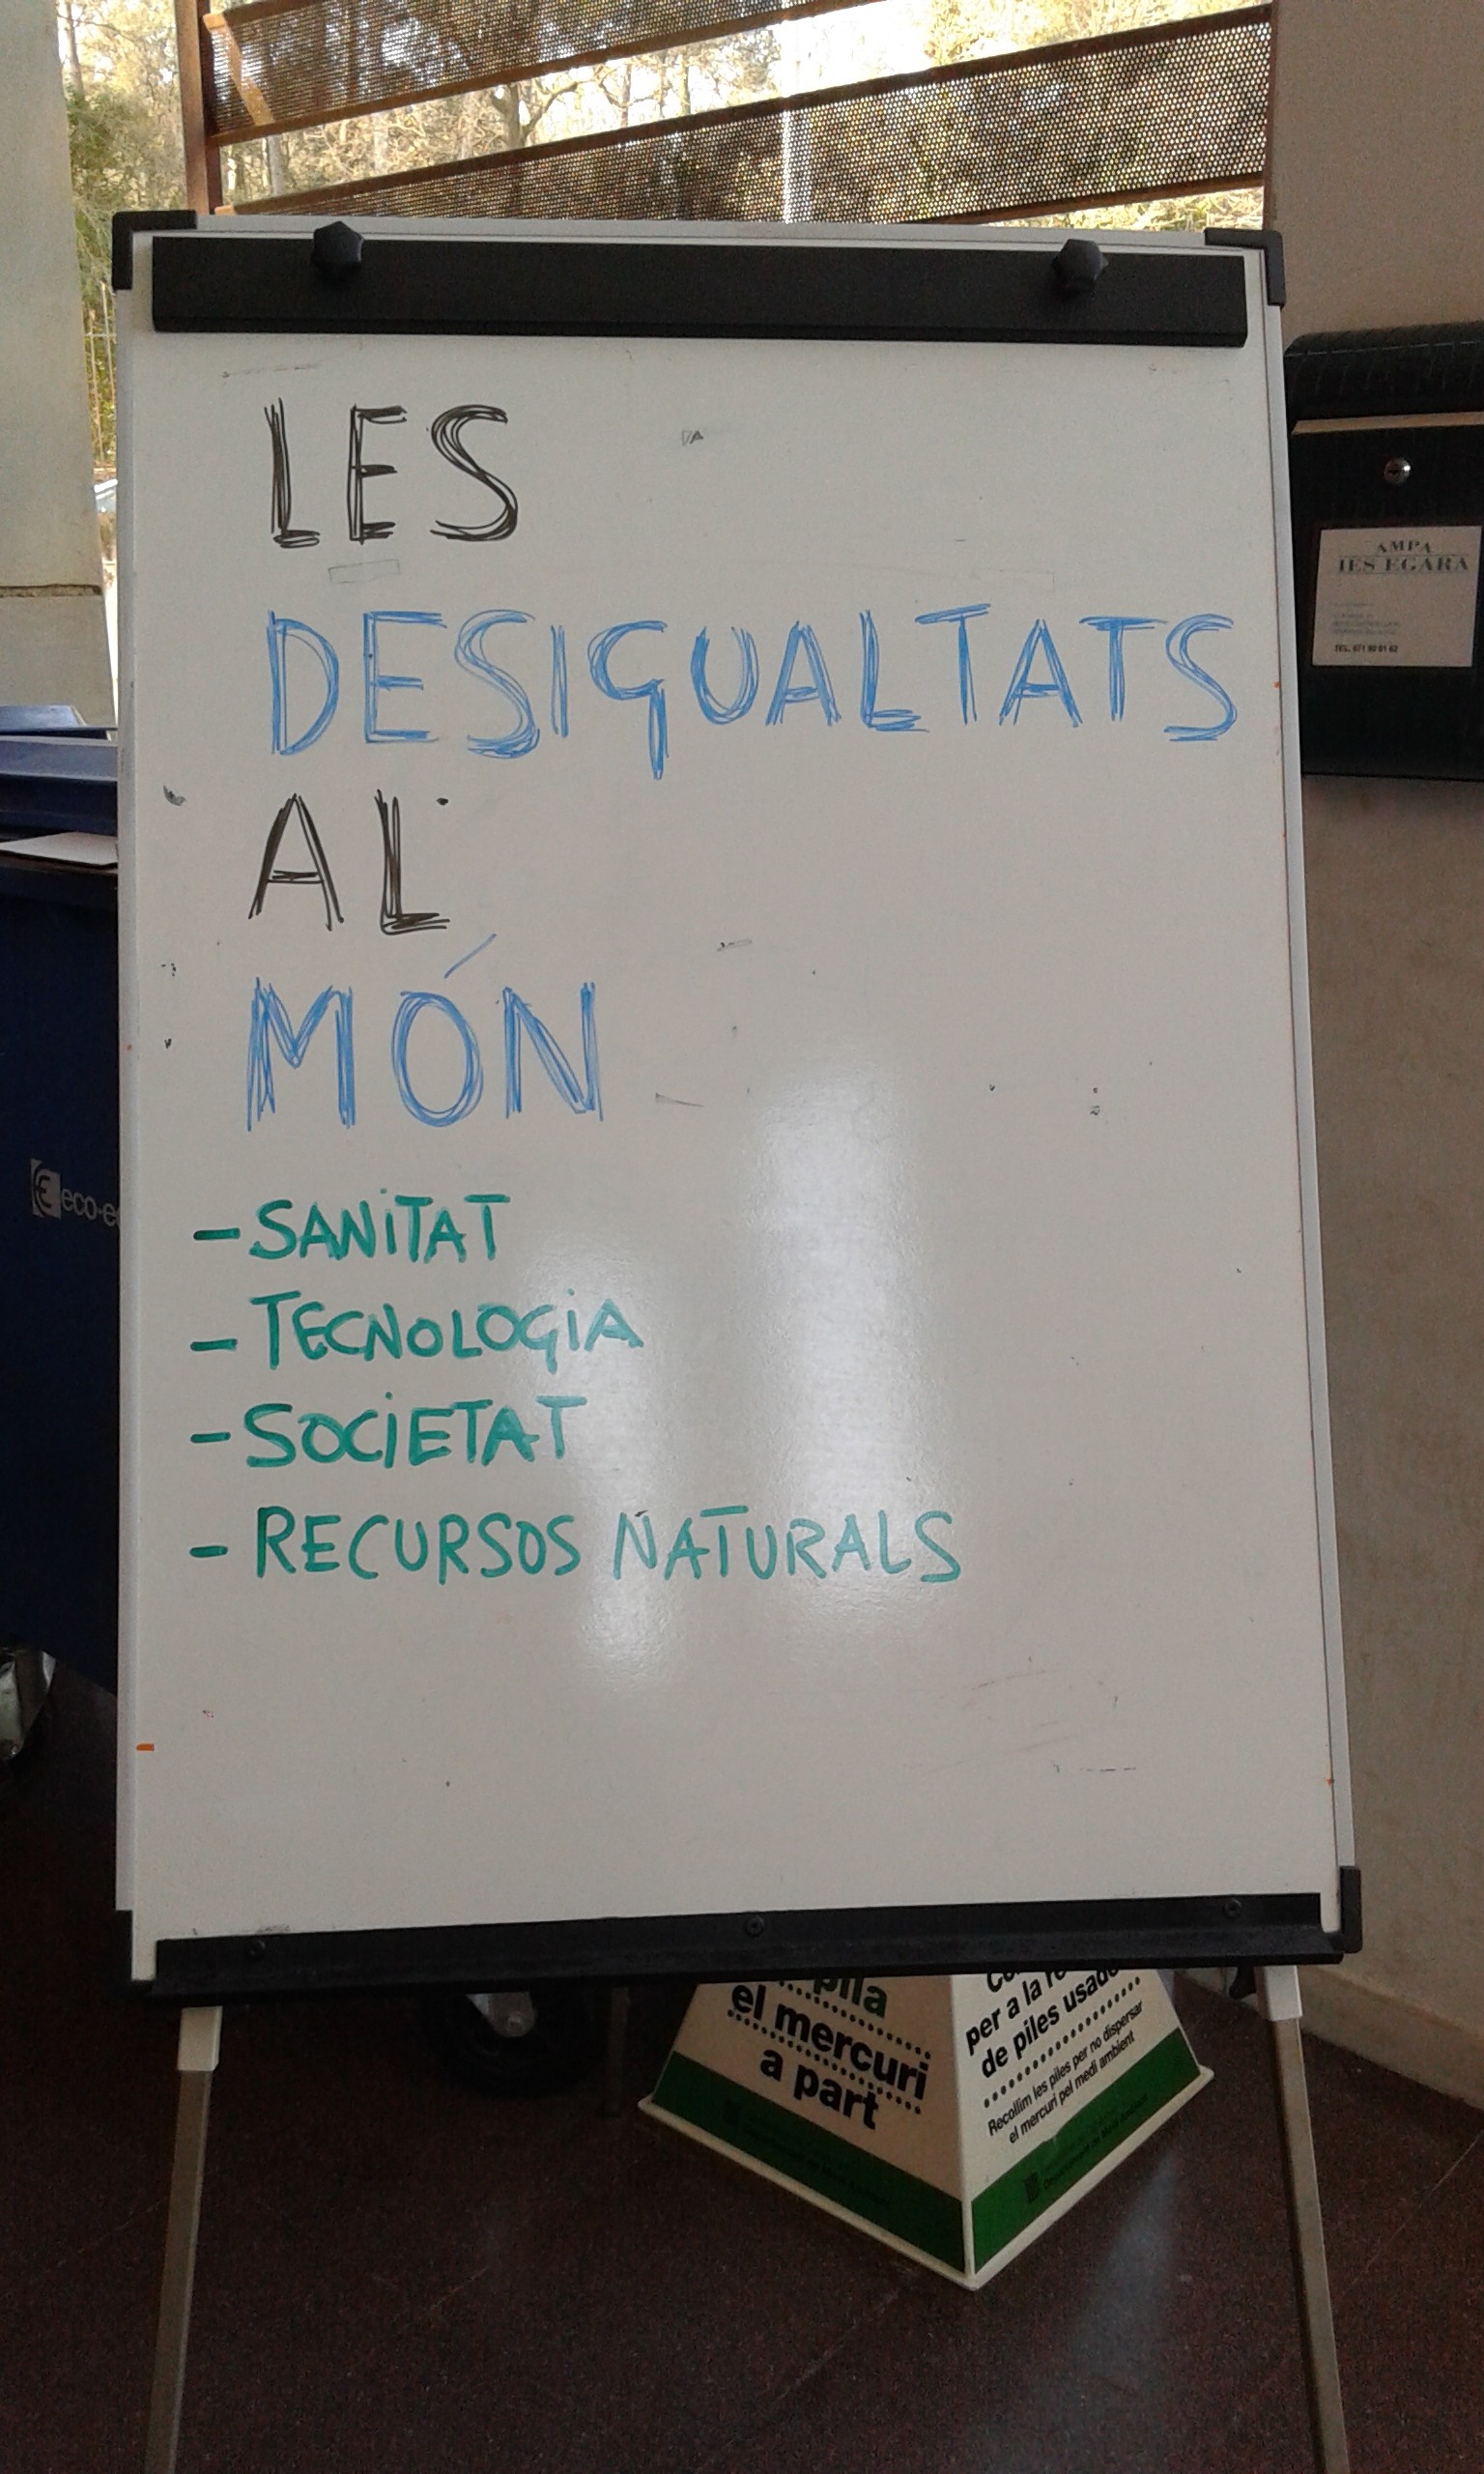 LES
DESIGUALTATS
AL
MÓN
- SANITAT
- TECNOLOGIA
- SOCIETAT
- RECURSOS NATURALS
AMPA
IES EGARA
eco-e
pila
el mercuri
a part
per a la
de piles usades
Recollim les piles per no dispersar
el mercuri pel medi ambient